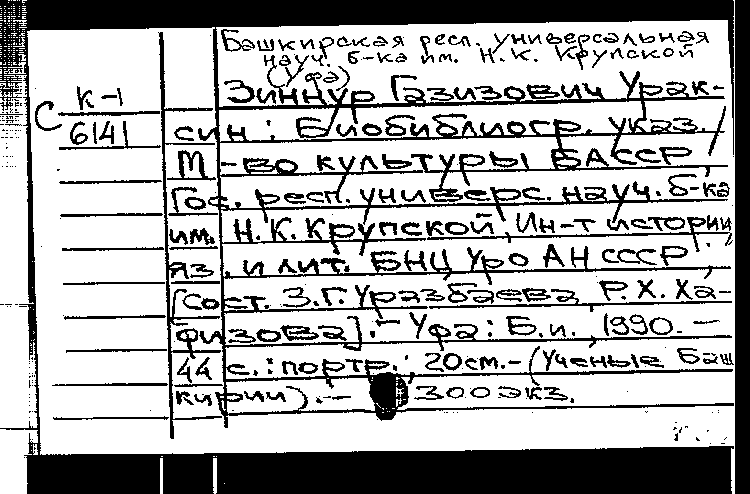 Башкирская респ. универсальная
науч. б-ка им. Н.К. Крупской
(Уфа)
К-1
С 6141
Зиннур Газизович Урак-
син : Биобиблиогр. указ. /
М-во культуры БАССР,
Гос. респ. универс. науч. б-ка
им. Н.К. Крупской, Ин-т истории,
яз. и лит. БНЦ УрО АН СССР ;
[Сост. З.Г. Уразбаева, Р.Х. Ха-
физова]. - Уфа : Б.и., 1990. -
44 с. : портр. ; 20 см. - (Ученые Баш
кирии). - 300 экз.